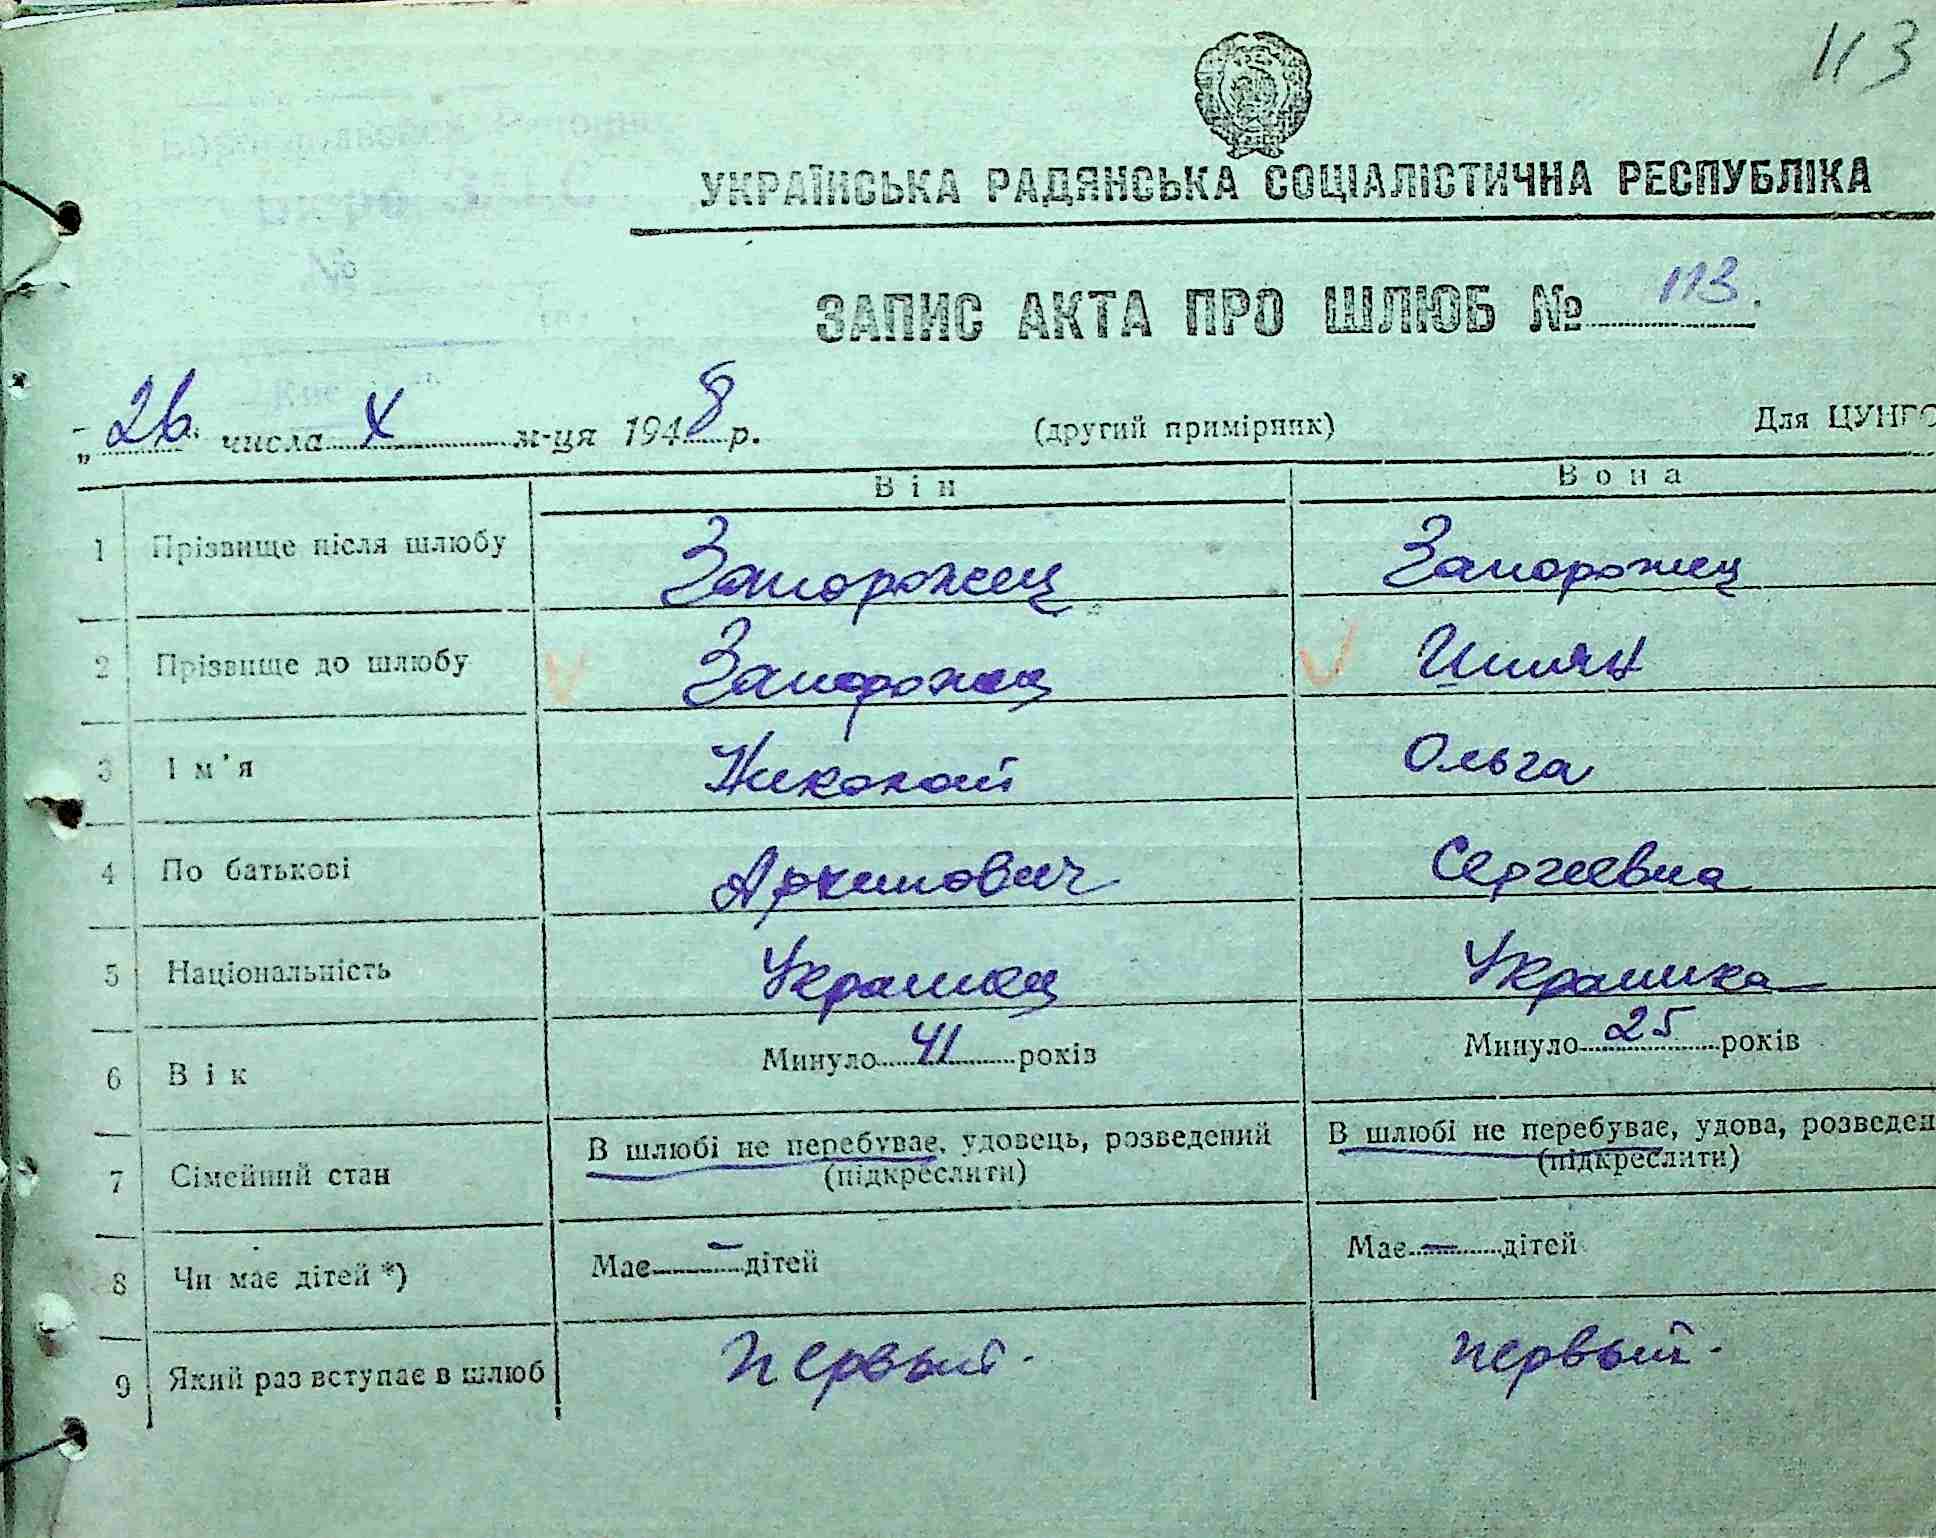 113
УКРАЇНСЬКА РАДЯНСЬКА СОЦІАЛІСТИЧНА РЕСПУБЛІКА
ЗАПИС АКТА ПРО ШЛЮБ № 113.
„26“ числа X м-ця 1948 р. (другий примірник) Для ЦУНГО
Він Вона
1 Прізвище після шлюбу Запорожец Запорожец
2 Прізвище до шлюбу Запорожец
3 Ім'я Николай Ольга
4 По батькові Архипович Сергеевна
5 Національність Украинец Украинка
6 Вік Минуло 41 років Минуло 25 років
7 Сімейний стан В шлюбі не перебуває, удовець, розведений (підкреслити) В шлюбі не перебуває, удова, розведен (підкреслити)
8 Чи має дітей *) Має — дітей Має — дітей
9 Який раз вступає в шлюб первый. первый.